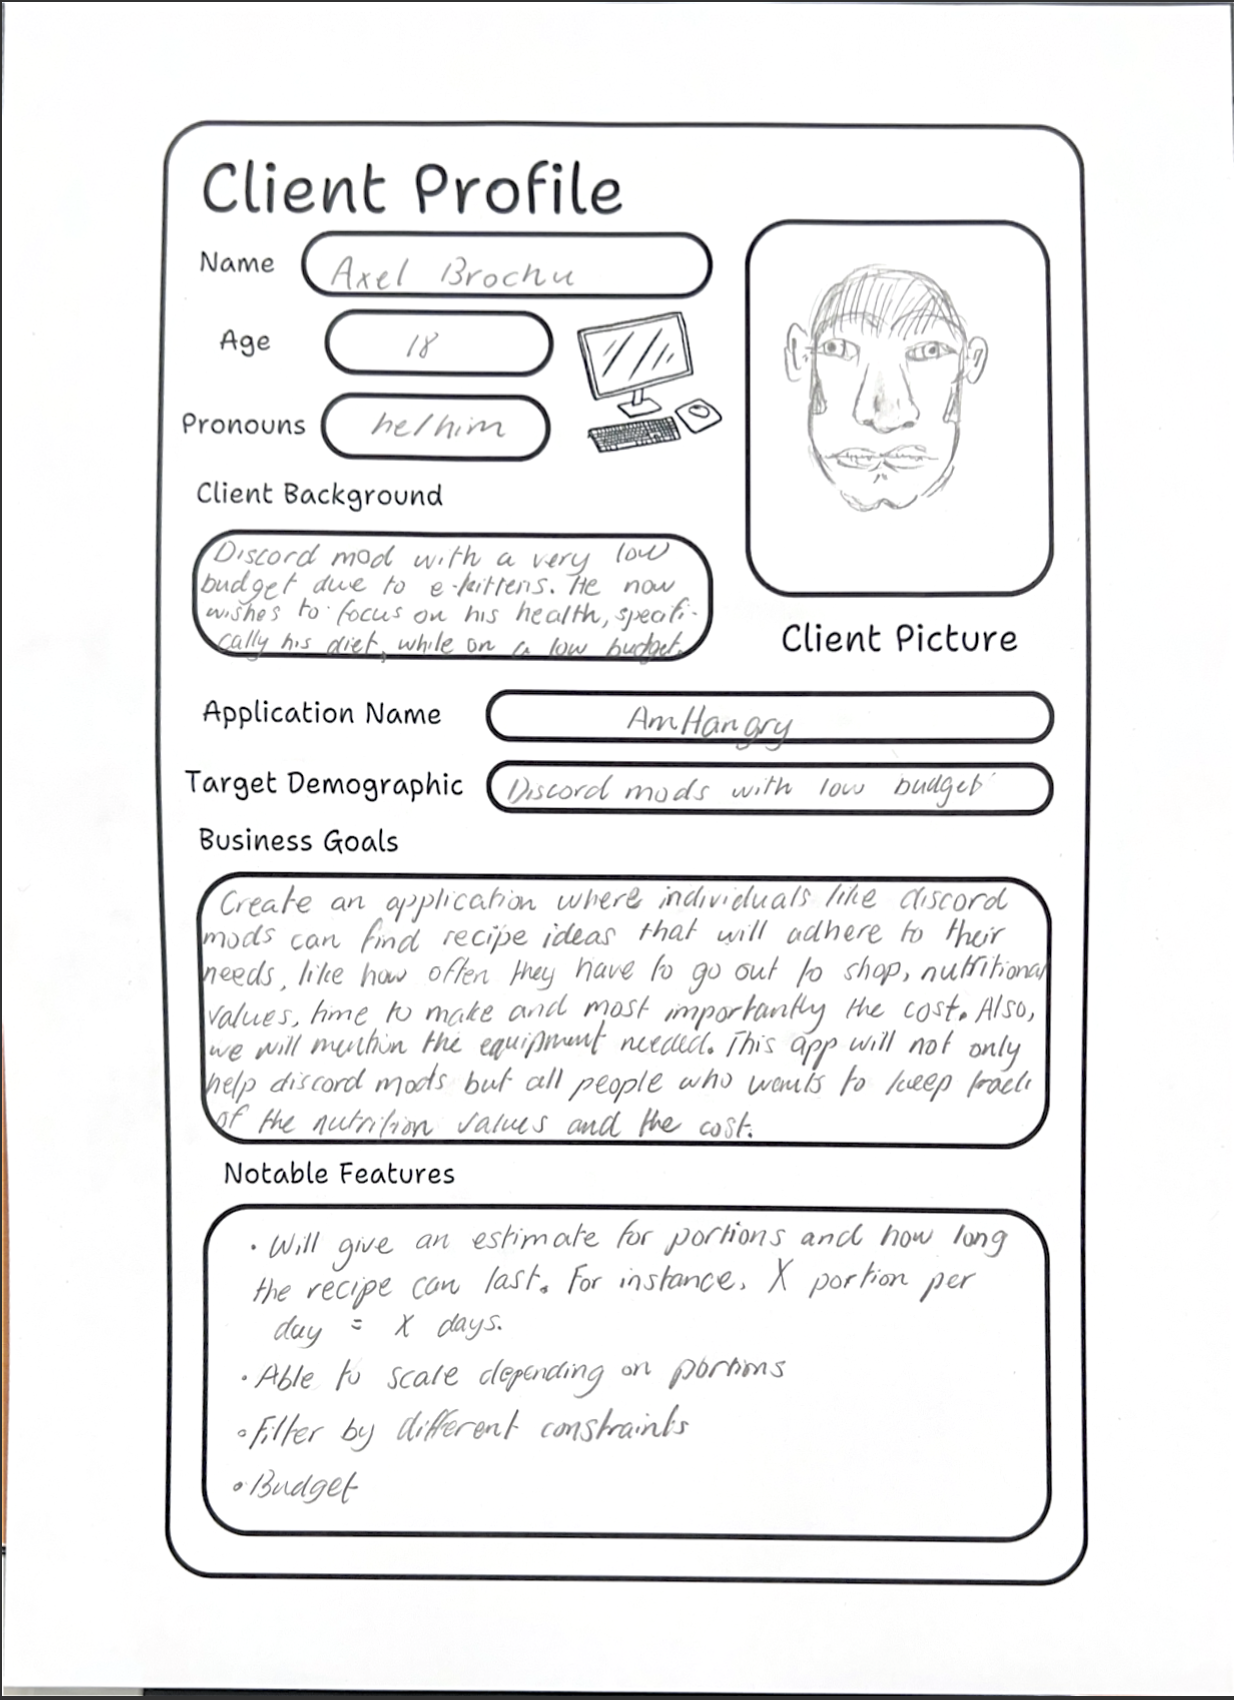 Client Profile
Name
Axel Brochu
Age
18
Pronouns
he/him
Client Background
Discord mod with a very low
budget due to e-kittens. He now
wishes to focus on his health, specifi-
cally his diet, while on a low budget.
Client Picture
Application Name
AmHangry
Target Demographic
Discord mods with low budget
Business Goals
Create an application where individuals like discord
mods can find recipe ideas that will adhere to their
needs, like how often they have to go out to shop, nutritional
values, time to make and most importantly the cost. Also,
we will mention the equipment needed. This app will not only
help discord mods but all people who wants to keep track
of the nutrition values and the cost.
Notable Features
• Will give an estimate for portions and how long
the recipe can last. For instance, X portion per
day = X days.
• Able to scale depending on portions
• Filter by different constraints
• Budget